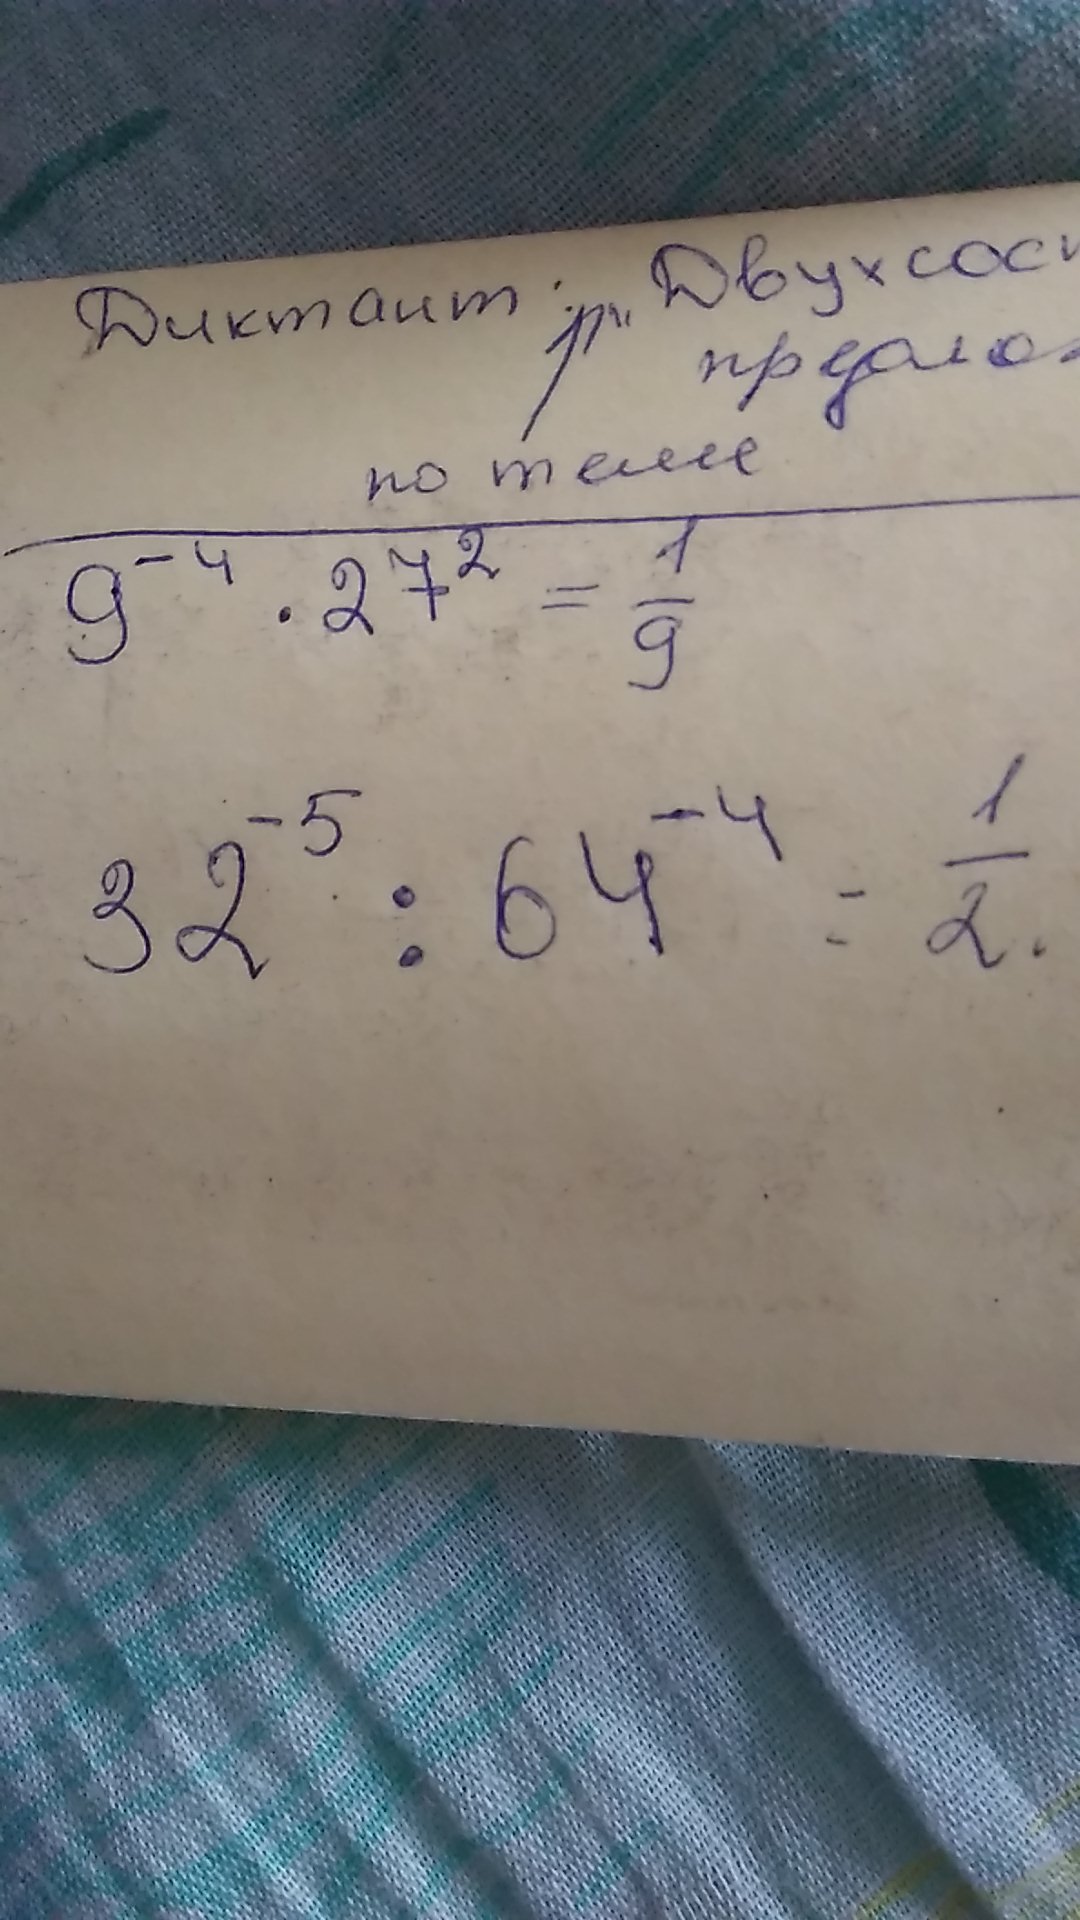 Диктант: „Двухсос
предло
по теме
9⁻⁴ · 27² = 1/9
32⁻⁵ : 64⁻⁴ = 1/2.